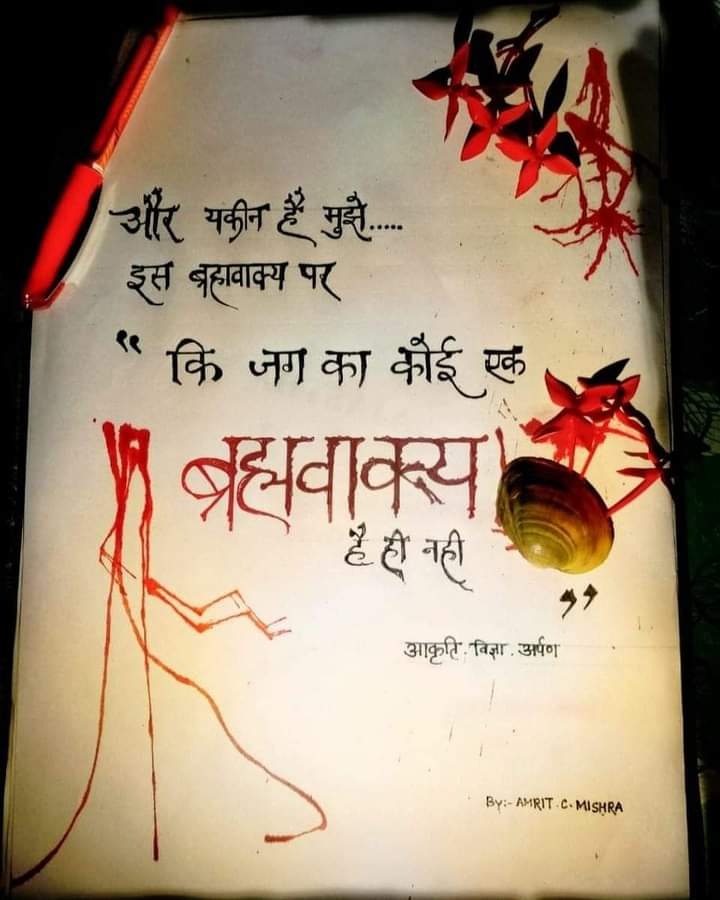 और यकीन है मुझे.....
इस ब्रह्मवाक्य पर
“ कि जग का कोई एक
ब्रह्मवाक्य
है ही नही
”
आकृति . विज्ञा . अर्पण
By:- AMRIT .C. MISHRA